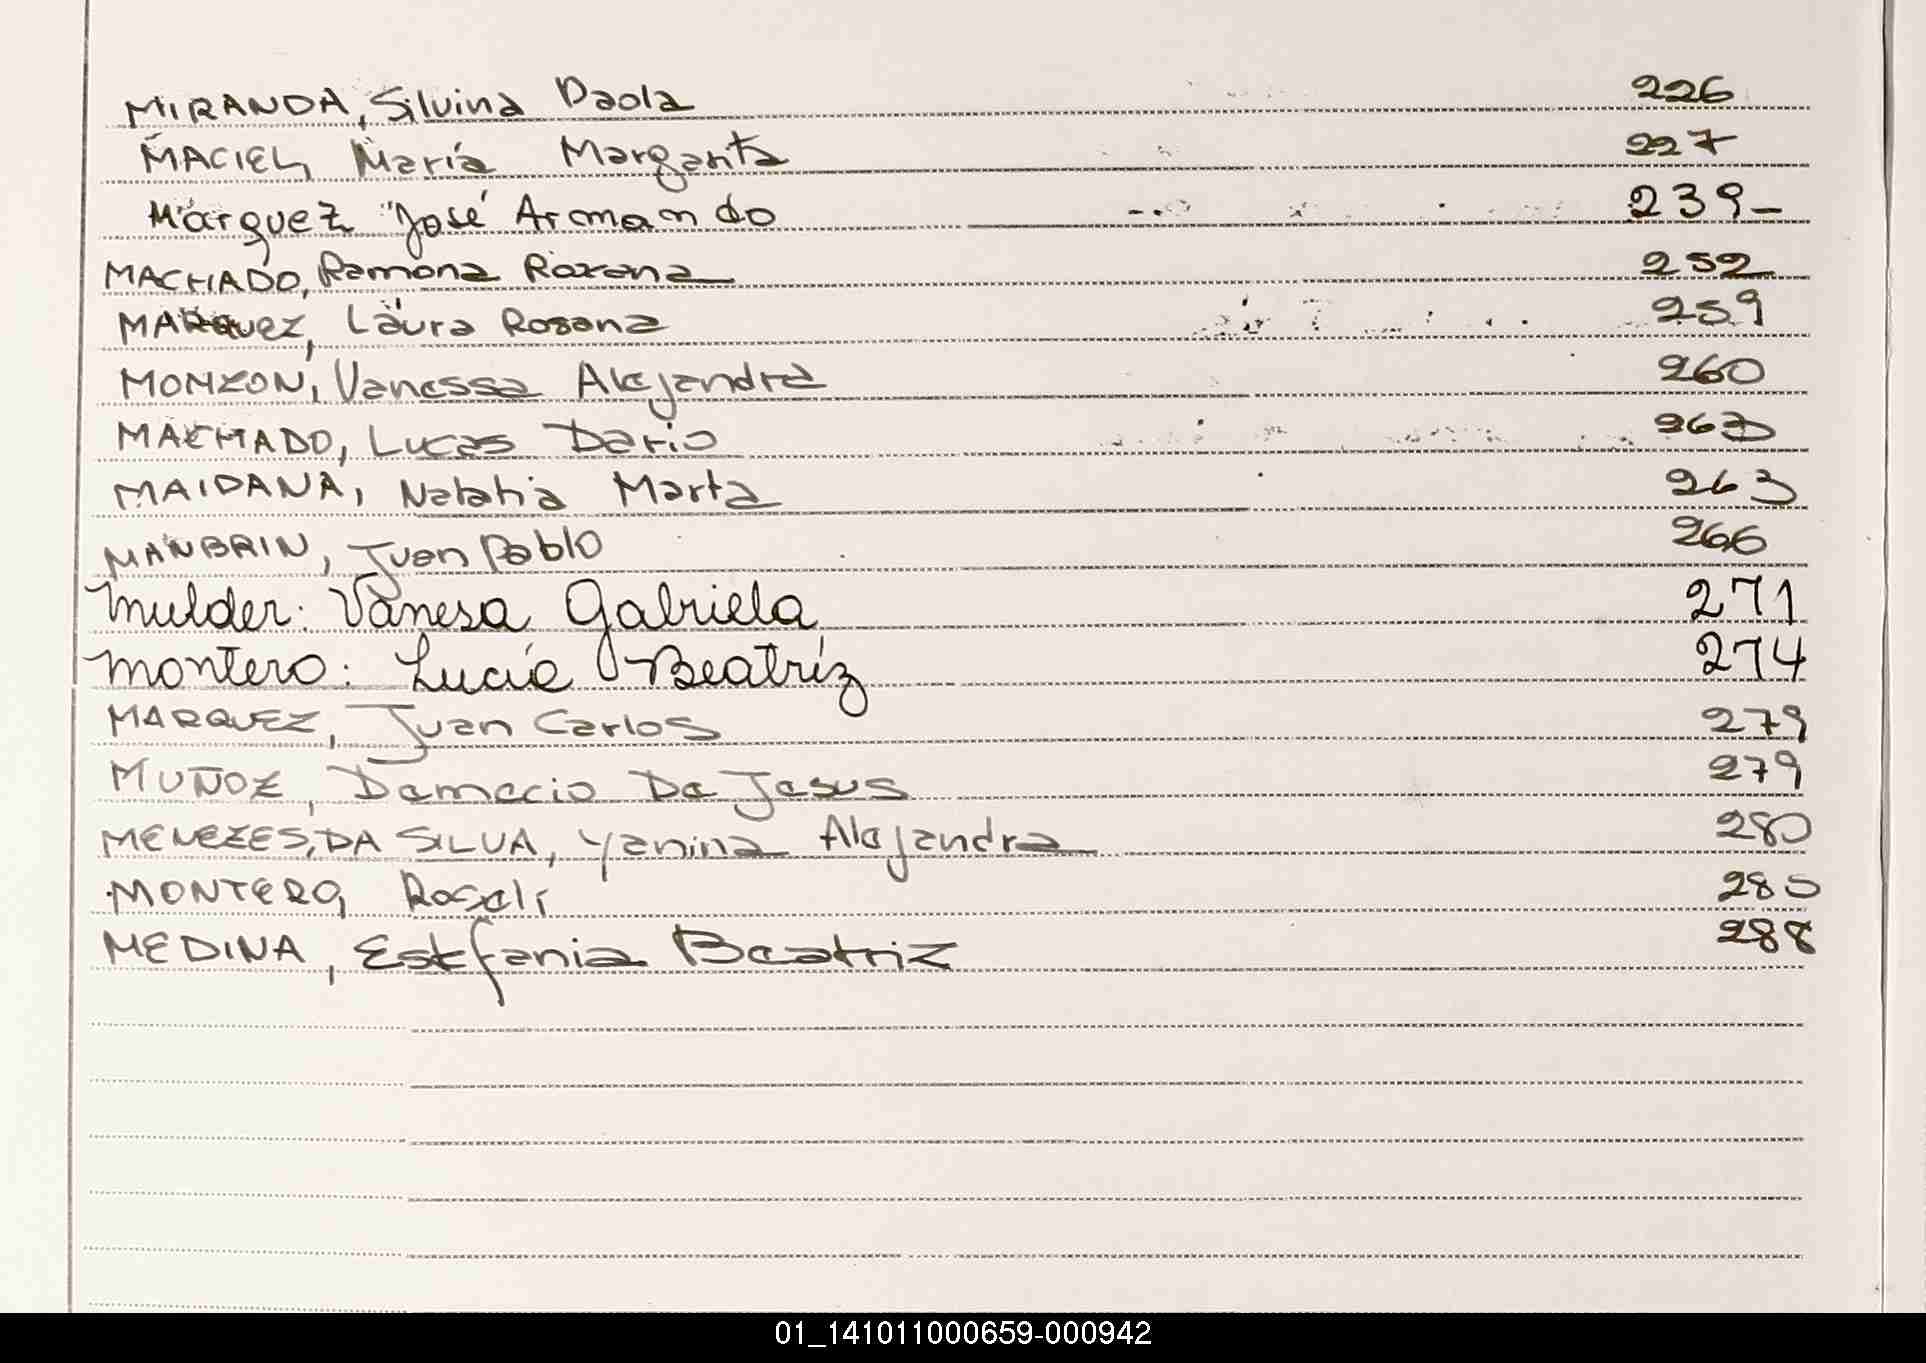 MIRANDA, Silvina Paola 226
MACIEL, María Margarita 227
Márquez José Armando 239-
MACHADO, Ramona Roxana 252
MARQUEZ, Laura Rosana 259
MONZON, Vanessa Alejandra 260
MACHADO, Lucas Dario
MAIDANA, Natalia Marta 263
MANBRIN, Juan Pablo 266
Mulder: Vanesa Gabriela 271
Montero: Lucía Beatríz 274
MARQUEZ, Juan Carlos 279
MUÑOZ, Damacio De Jesus 279
MENEZES, DA SILVA, Yanina Alejandra 280
MONTERO, Roseli 280
MEDINA, Estefania Beatriz 288
01_141011000659-000942